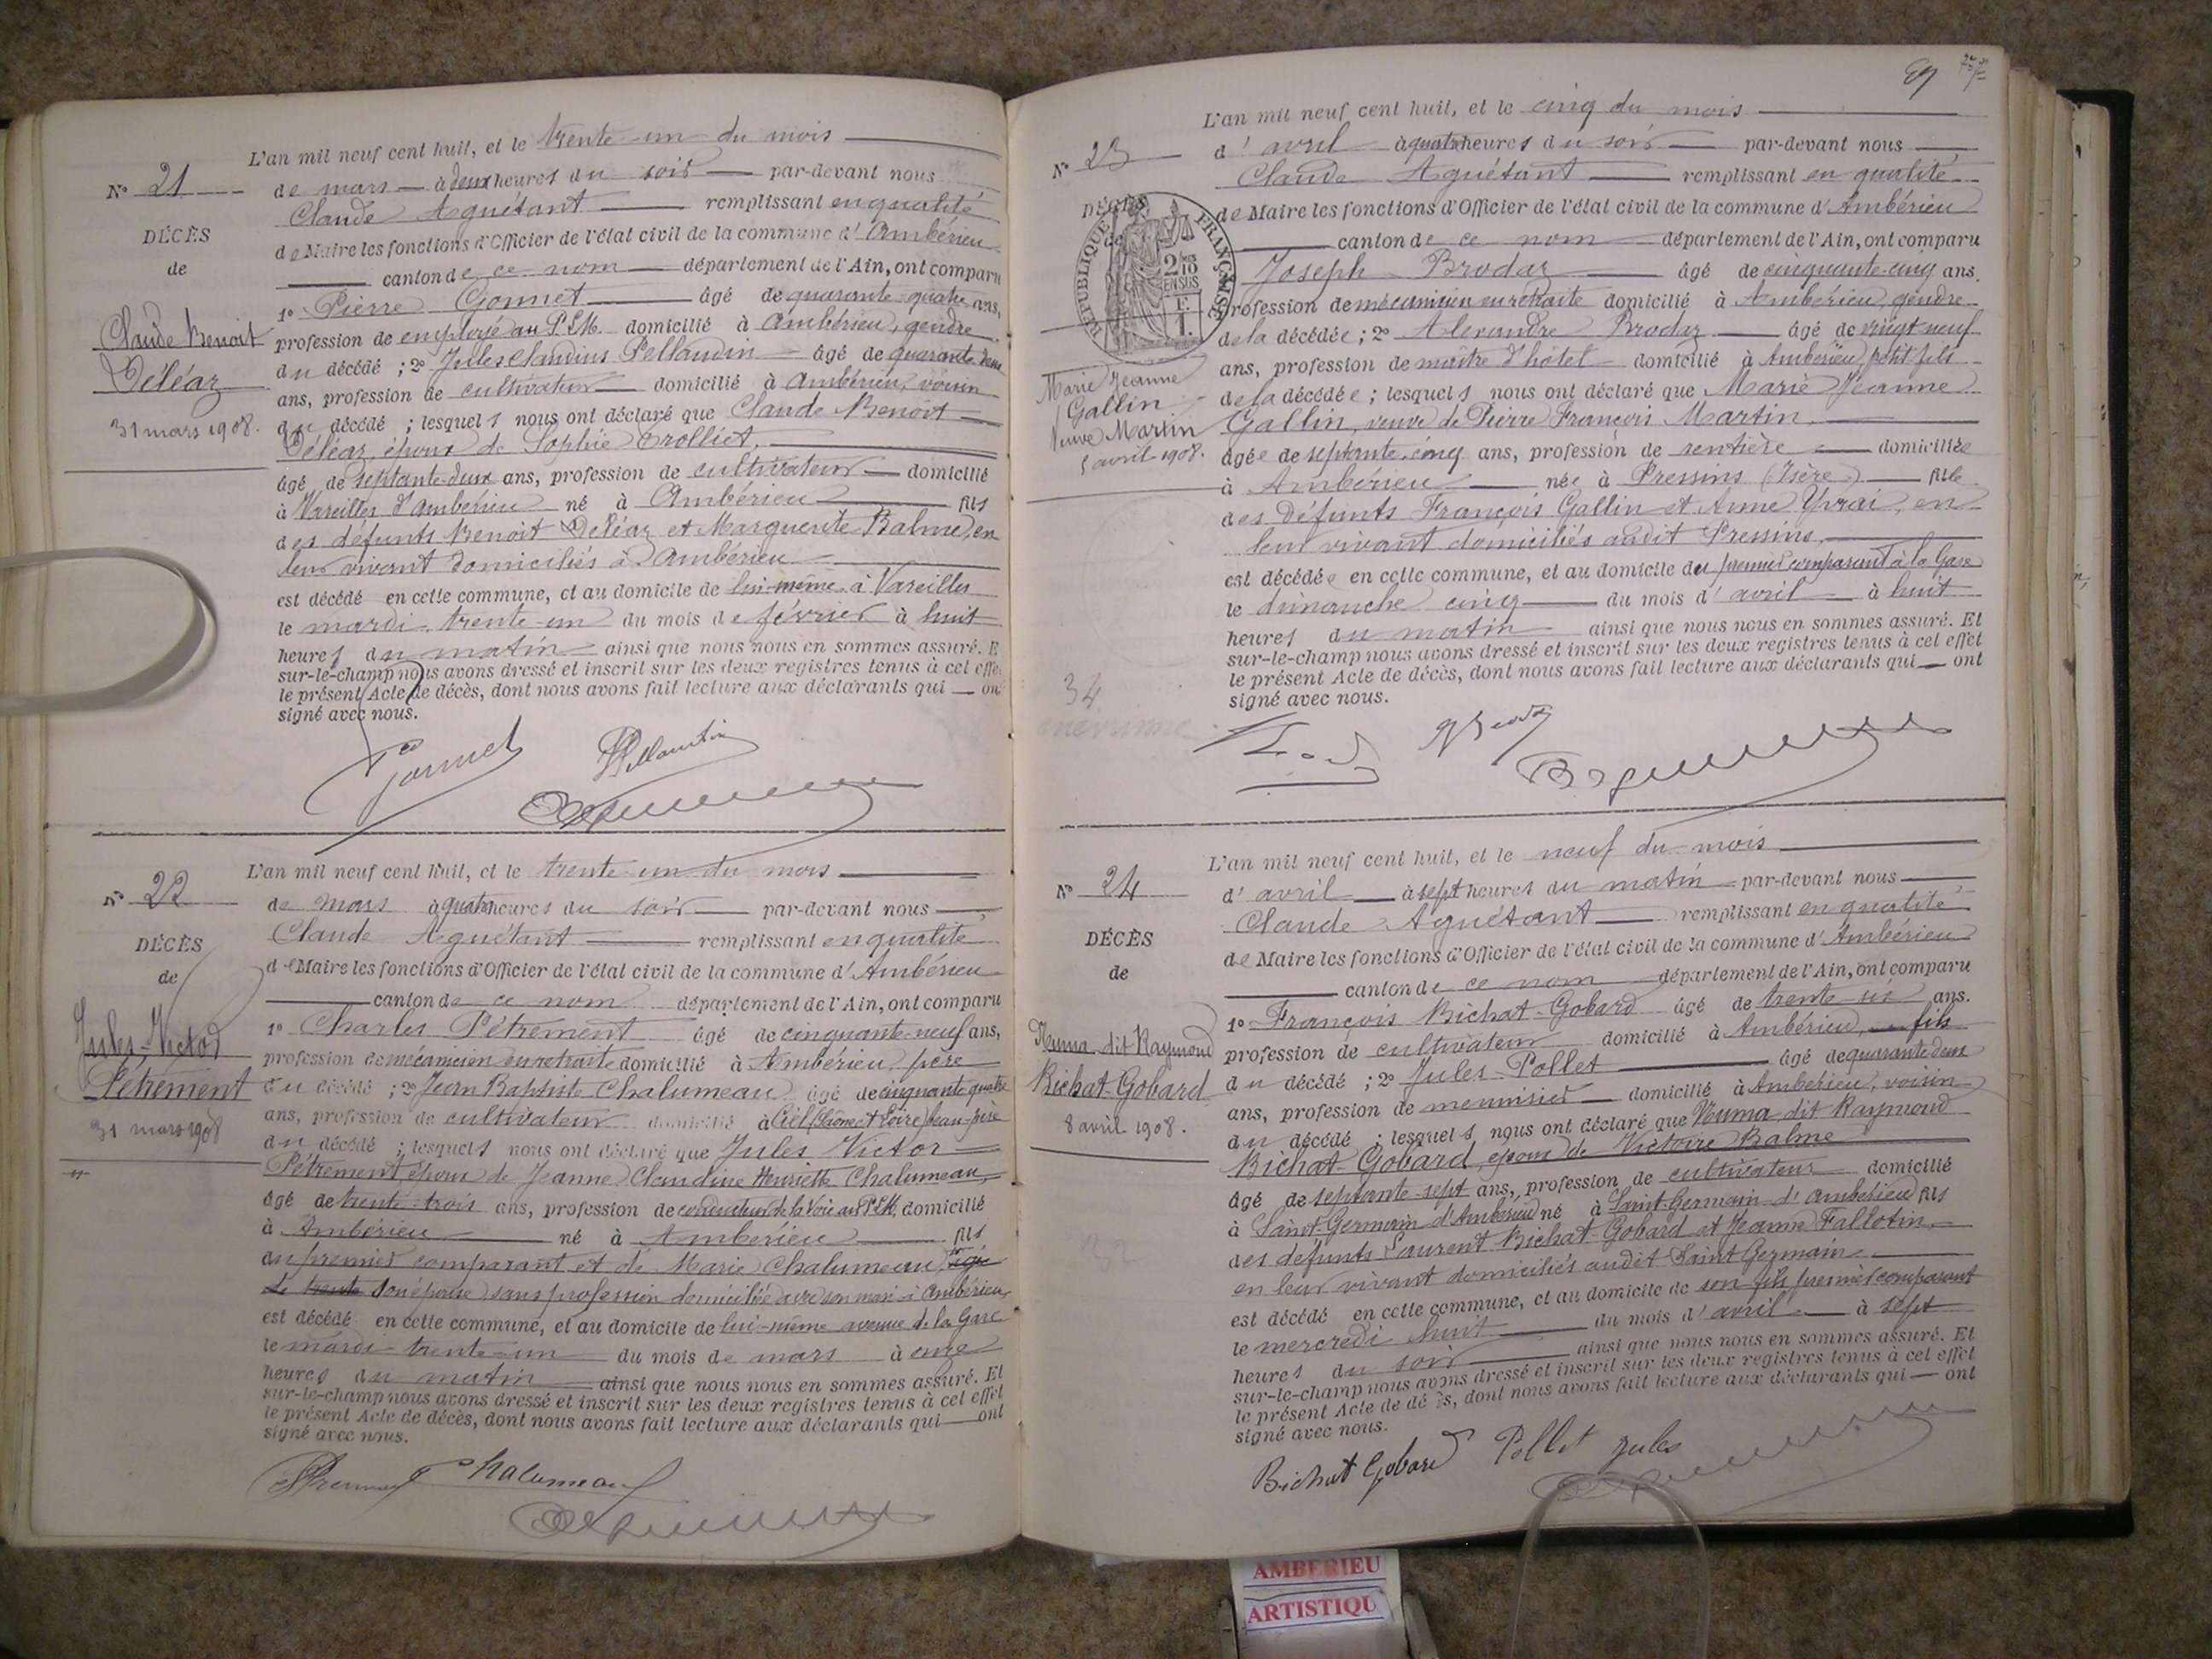 L'an mil neuf cent huit, et le trente-un du mois
N° 21
de mars à deux heures du soir par-devant nous
Claude Aguétant remplissant en qualité
DÉCÈS
de Maire les fonctions d'Officier de l'état civil de la commune d'Ambérieu
de
canton de ce nom département de l'Ain, ont comparu
1° Pierre Gonnet âgé de quarante-quatre ans,
Claude Benoit
profession de employé au P.L.M. domicilié à Ambérieu, gendre
Déléaz
du décédé ; 2° Jules Claudius Pellaudin âgé de quarante deux
ans, profession de cultivateur domicilié à Ambérieu, voisin
31 mars 1908.
du décédé ; lesquels nous ont déclaré que Claude Benoit
Déléaz, époux de Sophie Trolliet,
âgé de septante-deux ans, profession de cultivateur domicilié
à Vareilles d'Ambérieu né à Ambérieu fils
des défunts Benoit Déléaz et Marguerite Balme, en
leur vivant domiciliés à Ambérieu
est décédé en cette commune, et au domicile de lui-même à Vareilles
le mardi trente-un du mois de février à huit
heures du matin ainsi que nous nous en sommes assuré. E
sur-le-champ nous avons dressé et inscrit sur les deux registres tenus à cet effe
le présent Acte de décès, dont nous avons fait lecture aux déclarants qui on
signé avec nous.
Gonnet Pellaudin
L'an mil neuf cent huit, et le trente-un du mois
N° 22
de mars à quatre heures du soir par-devant nous
Claude Aguétant remplissant en qualité
DÉCÈS
de Maire les fonctions d'Officier de l'état civil de la commune d'Ambérieu
de
canton de ce nom département de l'Ain, ont comparu
Jules-Victor
1° Charles Pétrement âgé de cinquante-neuf ans,
profession de mécanicien en retraite domicilié à Ambérieu, père
Pétrement
du décédé ; 2° Jean Baptiste Chalumeau âgé de cinquante quatre
31 mars 1908
ans, profession de cultivateur domicilié à Ciel (Saône et Loire) beau-père
du décédé ; lesquels nous ont déclaré que Jules Victor
Pétrement, époux de Jeanne Claudine Henriette Chalumeau,
âgé de trente-trois ans, profession de conducteur de la Voie au P.L.M. domicilié
à Ambérieu né à Ambérieu fils
du premier comparant et de Marie Chalumeau, âgée
de trente son épouse sans profession domiciliée avec son mari à Ambérieu,
est décédé en cette commune, et au domicile de lui-même avenue de la Gare
le mardi trente-un du mois de mars à onze
heures du matin ainsi que nous nous en sommes assuré. Et
sur-le-champ nous avons dressé et inscrit sur les deux registres tenus à cet effet
le présent Acte de décès, dont nous avons fait lecture aux déclarants qui ont
signé avec nous.
Chalumeau
L'an mil neuf cent huit, et le cinq du mois
N° 23
d'avril à quatre heures du soir par-devant nous
Claude Aguétant remplissant en qualité
DÉCÈS
de
RÉPUBLIQUE FRANÇAISE
2/10 EN SUS
de Maire les fonctions d'Officier de l'état civil de la commune d'Ambérieu
canton de ce nom département de l'Ain, ont comparu
Joseph Brodaz âgé de cinquante-cinq ans.
profession de mécanicien en retraite domicilié à Ambérieu, gendre
de la décédée ; 2° Alexandre Brodaz âgé de vingt neuf
ans, profession de maître d'hôtel domicilié à Ambérieu, petit fils
Marie Jeanne
Gallin
Veuve Martin
5 avril 1908.
de la décédée ; lesquels nous ont déclaré que Marie Jeanne
Gallin, veuve de Pierre François Martin,
âgée de septante-cinq ans, profession de rentière domiciliée
à Ambérieu née à Pressins (Isère) fille
des défunts François Gallin et Anne Yvrai, en
leur vivant domiciliés audit Pressins,
est décédée en cette commune, et au domicile du premier comparant à la Gare
le dimanche cinq du mois d'avril à huit
heures du matin ainsi que nous nous en sommes assuré. Et
sur-le-champ nous avons dressé et inscrit sur les deux registres tenus à cet effet
34
le présent Acte de décès, dont nous avons fait lecture aux déclarants qui ont
signé avec nous.
L'an mil neuf cent huit, et le neuf du mois
N° 24
d'avril à sept heures du matin par-devant nous
Claude Aguétant remplissant en qualité
DÉCÈS
de Maire les fonctions d'Officier de l'état civil de la commune d'Ambérieu
de
canton de ce nom département de l'Ain, ont comparu
1° François Bichat-Gobard âgé de trente-six ans.
Numa dit Raymond
profession de cultivateur domicilié à Ambérieu, fils
Bichat-Gobard
du décédé ; 2° Jules Pollet âgé de quarante deux
8 avril 1908.
ans, profession de menuisier domicilié à Ambérieu, voisin
du décédé ; lesquels nous ont déclaré que Numa dit Raymond
Bichat-Gobard, époux de Victoire Balme
âgé de septante-sept ans, profession de cultivateur domicilié
à Saint-Germain d'Ambérieu né à Saint-Germain d'Ambérieu fils
des défunts Laurent Bichat-Gobard et Jeanne Fallotin,
en leur vivant domiciliés audit Saint Germain
est décédé en cette commune, et au domicile de son fils premier comparant
le mercredi huit du mois d'avril à sept
heures du soir ainsi que nous nous en sommes assuré. Et
sur-le-champ nous avons dressé et inscrit sur les deux registres tenus à cet effet
le présent Acte de décès, dont nous avons fait lecture aux déclarants qui ont
signé avec nous.
Bichat Gobard Pollet Jules
AMBERIEU
ARTISTIQU